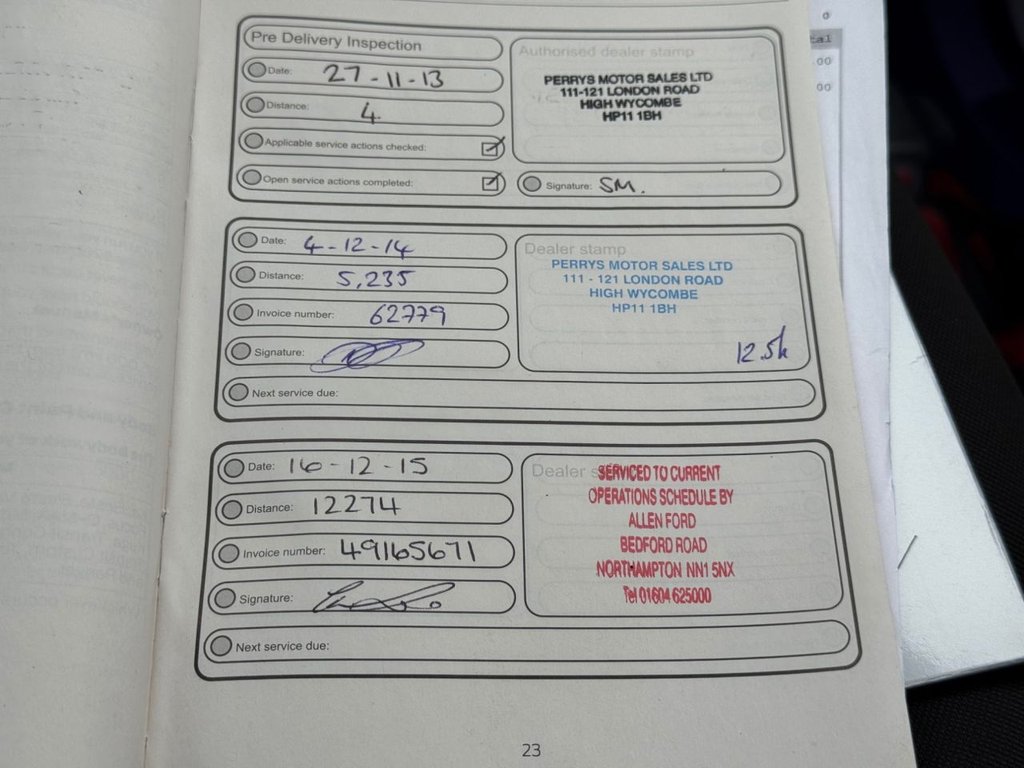 Pre Delivery Inspection
Date: 27-11-13
Distance: 4
Applicable service actions checked:
Open service actions completed:
Authorised dealer stamp
PERRYS MOTOR SALES LTD
111-121 LONDON ROAD
HIGH WYCOMBE
HP11 1BH
Signature: SM.
Date: 4-12-14
Distance: 5,235
Invoice number: 62779
Signature:
Dealer stamp
PERRYS MOTOR SALES LTD
111 - 121 LONDON ROAD
HIGH WYCOMBE
HP11 1BH
12.5k
Next service due:
Date: 16-12-15
Distance: 12274
Invoice number: 49165671
Signature:
Dealer
SERVICED TO CURRENT
OPERATIONS SCHEDULE BY
ALLEN FORD
BEDFORD ROAD
NORTHAMPTON NN1 5NX
Tel 01604 625000
Next service due:
23